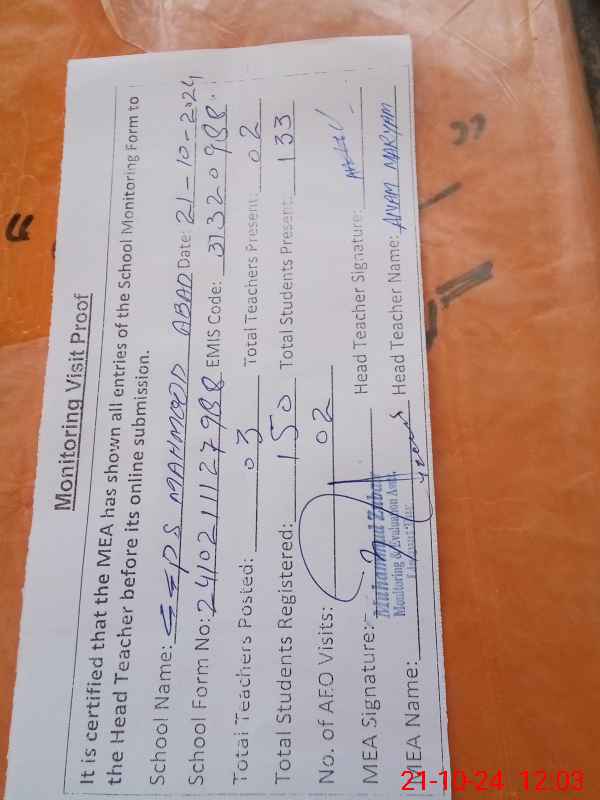 Monitoring Visit Proof
It is certified that the MEA has shown all entries of the School Monitoring Form to
the Head Teacher before its online submission.
School Name: GGPS MAHMOOD ABAD Date: 21-10-2024
School Form No: 2410211127988 EMIS Code: 37320988
Total Teachers Posted: 03 Total Teachers Present: 02
Total Students Registered: 150 Total Students Present: 133
No. of AEO Visits: 02
MEA Signature: Head Teacher Signature:
Muhammad Zubair
Monitoring & Evaluation Asstt.
MEA Name: Head Teacher Name: ANAM MARYAM
21-10-24 12:03